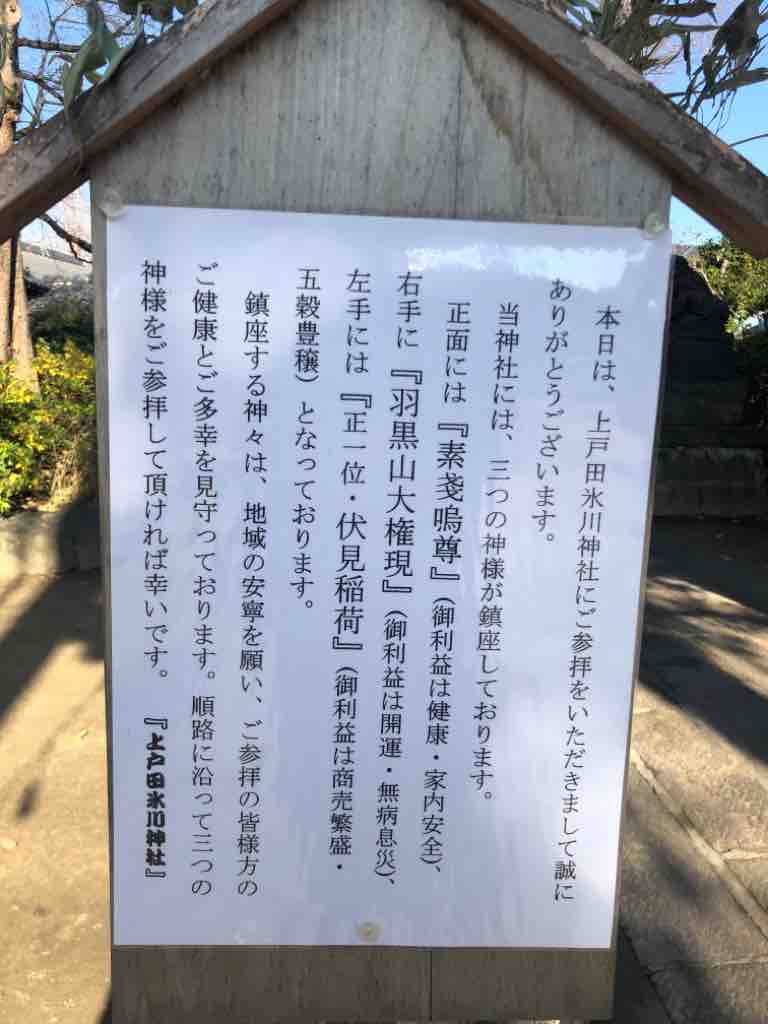 本日は、上戸田氷川神社にご参拝をいただきまして誠に
ありがとうございます。
当神社には、三つの神様が鎮座しております。
正面には『素戔嗚尊』(御利益は健康・家内安全)、
右手に『羽黒山大権現』(御利益は開運・無病息災)、
左手には『正一位・伏見稲荷』(御利益は商売繁盛・
五穀豊穣)となっております。
鎮座する神々は、地域の安寧を願い、ご参拝の皆様方の
ご健康とご多幸を見守っております。順路に沿って三つの
神様をご参拝して頂ければ幸いです。『上戸田氷川神社』